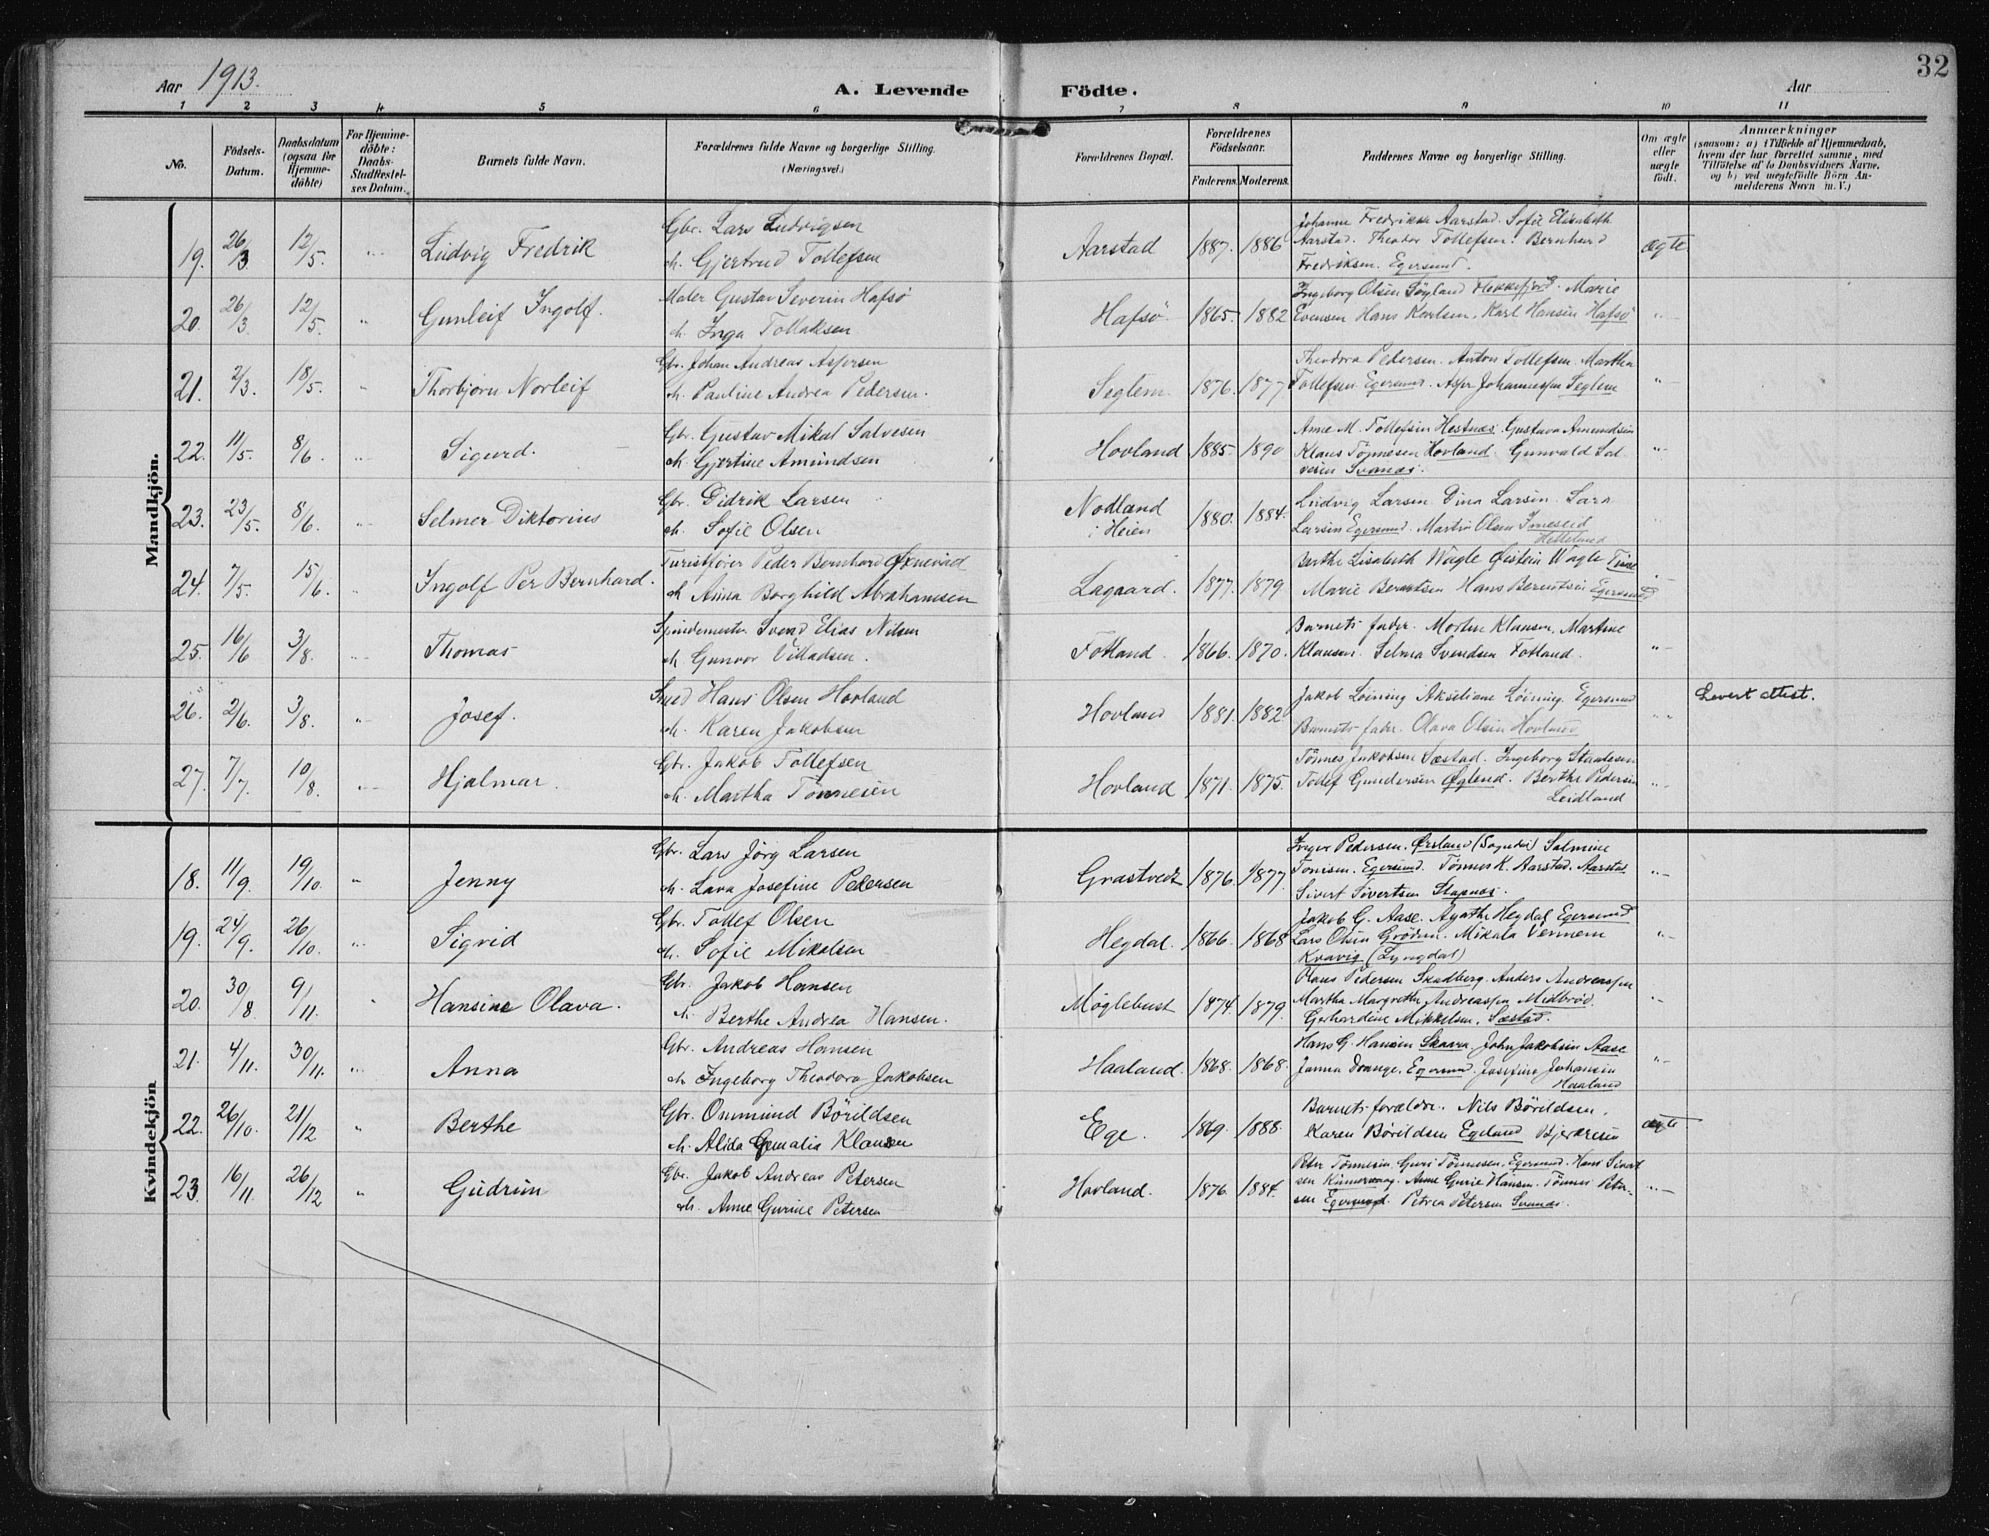 32
Aar 1913. A. Levende Födte. Aar
1 2 3 4 5 6 7 8 9 10 11
No. Födsels-Datum. Daabsdatum (ogsaa for Hjemme-döbte) For Hjemme-döbte: Daabs-Stadfæstel-ses Datum. Barnets fulde Navn. Forældrenes fulde Navne og borgerlige Stilling. (Næringsvei.) Forældrenes Bopæl. Forældrenes Födselsaar. Faderens. Moderens. Faddernes Navne og borgerlige Stilling. Om ægte eller uægte födt. Anmærkninger (saasom: a) i Tilfælde af Hjemmedaab, hvem der har forrettet samme, med Tilföielse af to Daabsvidners Navne, og b) ved uægtefödte Börn An-melderens Navn m. V.)
Mandkjön.
19. 26/3 12/5. Ludvig Fredrik Gbr. Lars Ludvigsen Aarstad 1887. 1886 Johanne Fredrikke Aarstad. Sofie Elisabeth ægte
h. Gjertrud Tollefsen Aarstad. Theodor Tollefsen. Bernhard
Fredriksen. Egersund.
20. 26/3. 12/5. Gunleif Ingolf. Maler Gustav Severin Hafsø Hafsø. 1865. 1882 Ingeborg Olsen Søyland Flekkefjord. Marie
h. Inga Tollaksen Evensen Hans Karlsen. Karl Hansen Hafsø
21. 2/3. 18/5. Thorbjørn Norleif Gbr. Johan Andreas Aspersen Seglem. 1876. 1877 Theodora Pedersen. Anton Tollefsen. Martha
h. Pauline Andrea Pedersen. Tollefsen Egersund. Asper Johannessen Seglem
22. 11/5. 8/6. Sigurd. Gbr. Gustav Mikal Salvesen Hovland 1885. 1890 Anne M. Tollefsen Hestnæs. Gustava Amundsen
h. Gjertine Amundsen Klaus Tønnesen Hovland. Gunvald Sal-
vesen Svanæs.
23. 23/5. 8/6. Selmer Diktorius Gbr. Didrik Larsen Nodland i Heien 1880. 1884. Ludvig Larsen. Dina Larsen. Sara
h. Sofie Olsen Larsen Egersund. Martin Olsen
Helleland
24. 7/5. 15/6. Ingolf Per Bernhard. Turistfører Peder Bernhard Lagaard. 1877. 1879. Berthe Lisabeth Wagle Øistein Wagle Tine
h. Anna Borghild Abrahamsen Marie Berentsen Hans Berentsen Egersund
25. 16/6 3/8. Thomas Spindemester Svend Elias Nilsen Fotland. 1866. 1870. Barnets fader. Morten Klausen, Martine
h. Gunvor Villadsen. Klausen. Selma Svendsen Fotland.
26. 2/6. 3/8. Josef. Smed Hans Olsen Hovland Hovland 1881. 1882 Jakob Løining Akseliane Løining. Egersund Levert attest.
h. Karen Jakobsen Barnets fader. Olava Olsen Hovland
27. 7/7. 10/8. Hjalmar. Gbr. Jakob Tollefsen Hovland 1871. 1875. Tønnes Jakobsen Sæstad. Ingeborg Staalesen
h. Martha Tønnesen Tollef Gundersen Øglend. Berthe Pedersen
Leidland
Kvindekjön
18. 11/9. 19/10. Jenny Gbr. Lars Jørg Larsen Grastvedt 1876. 1877. Inger Pedersen. Ørsland (Sogndal) Salmine
h. Lava Josefine Pedersen Tonisen. Egersund. Tønnes K. Aarstad. Aarstad.
Sivert Sivertsen Slapnæs.
19. 24/9. 26/10. Sigvid Gbr. Tollef Olsen Hegdal. 1866. 1868 Jakob G. Aase. Agathe Hegdal Egersund
h. Sofie Mikalsen Lars Olsen Grøden. Mikala
Kvavig (Lyngdal)
20. 30/8 9/11. Hansine Olava. Gbr. Jakob Hansen Møglebust 1874. 1879. Olaus Pedersen Skadberg. Anders Andreassen
h. Berthe Andrea Hansen. Martha Margrethe Andreassen Midbrød.
Gerhardine Mikkelsen. Sæstad.
21. 4/11. 30/11. Anna Gbr. Andreas Hansen Haaland. 1868. 1868. Hans G. Hansen Skaara. John Jakobsen Aase
h. Ingeborg Theodora Jakobsen Janna Drange, Egersund. Josefine Johansen
Haaland
22. 26/10. 21/12 Berthe Gbr. Ommund Börildsen Ege. 1869. 1888. Barnets forældre. Nils Börildsen. ægte
h. Alida Amalia Klausen Karen Börildsen Egeland Bjerkreim
23. 16/11. 26/12 Gudrun Gbr. Jakob Andreas Petersen Hovland. 1876. 1884. Peter Tønnesen Guri Tønnesen. Egersund. Hans Sivert
h. Anne Gurine Petersen sen Anne Gurie Hansen. Tønnes Peter-
sen Egersund. Petrea Petersen Svanæs.